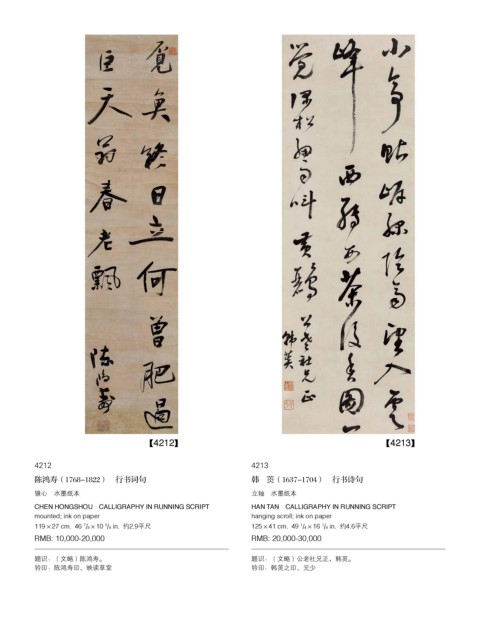 覓魚終日立何曾肥過
天翁春老飄
陳鴻壽
小亭 岸綠陰 望入雲
峰 西 西 茶後香團一
覺深松細雨叫黃鸝 公老社兄正
韓菼
【4212】
【4213】
4212
陈鸿寿（1768–1822） 行书词句
镜心 水墨纸本
CHEN HONGSHOU CALLIGRAPHY IN RUNNING SCRIPT
mounted; ink on paper
119×27 cm. 46 7/8×10 5/8 in. 约2.9平尺
RMB: 10,000-20,000
题识：（文略）陈鸿寿。
钤印：陈鸿寿印、映读草堂
4213
韩 菼（1637–1704） 行书诗句
立轴 水墨纸本
HAN TAN CALLIGRAPHY IN RUNNING SCRIPT
hanging scroll; ink on paper
125×41 cm. 49 1/4×16 1/8 in. 约4.6平尺
RMB: 20,000-30,000
题识：（文略）公老社兄正，韩菼。
钤印：韩菼之印、元少